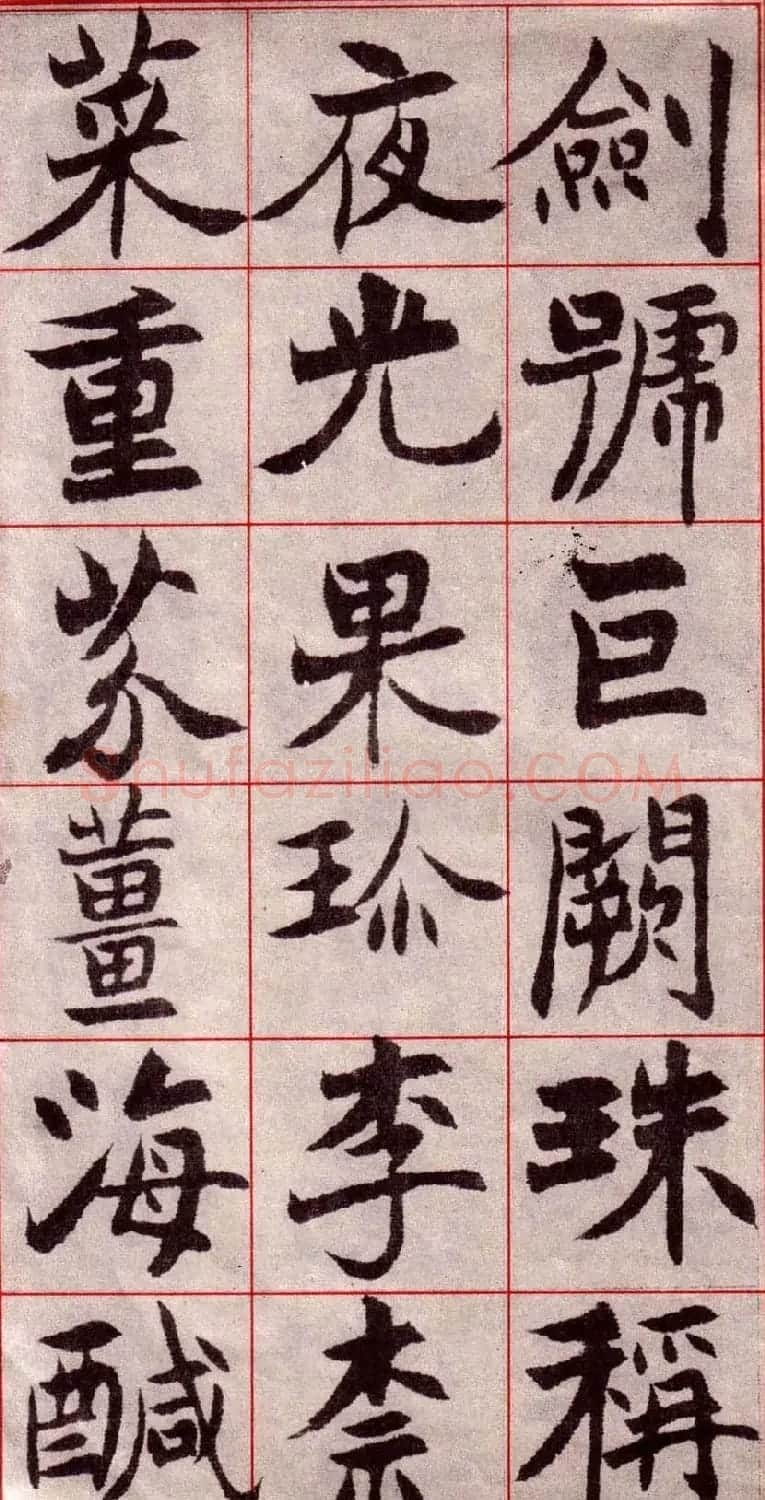 劍號巨闕珠稱
夜光果珍李柰
菜重芥薑海醎
Shufaziliao.COM